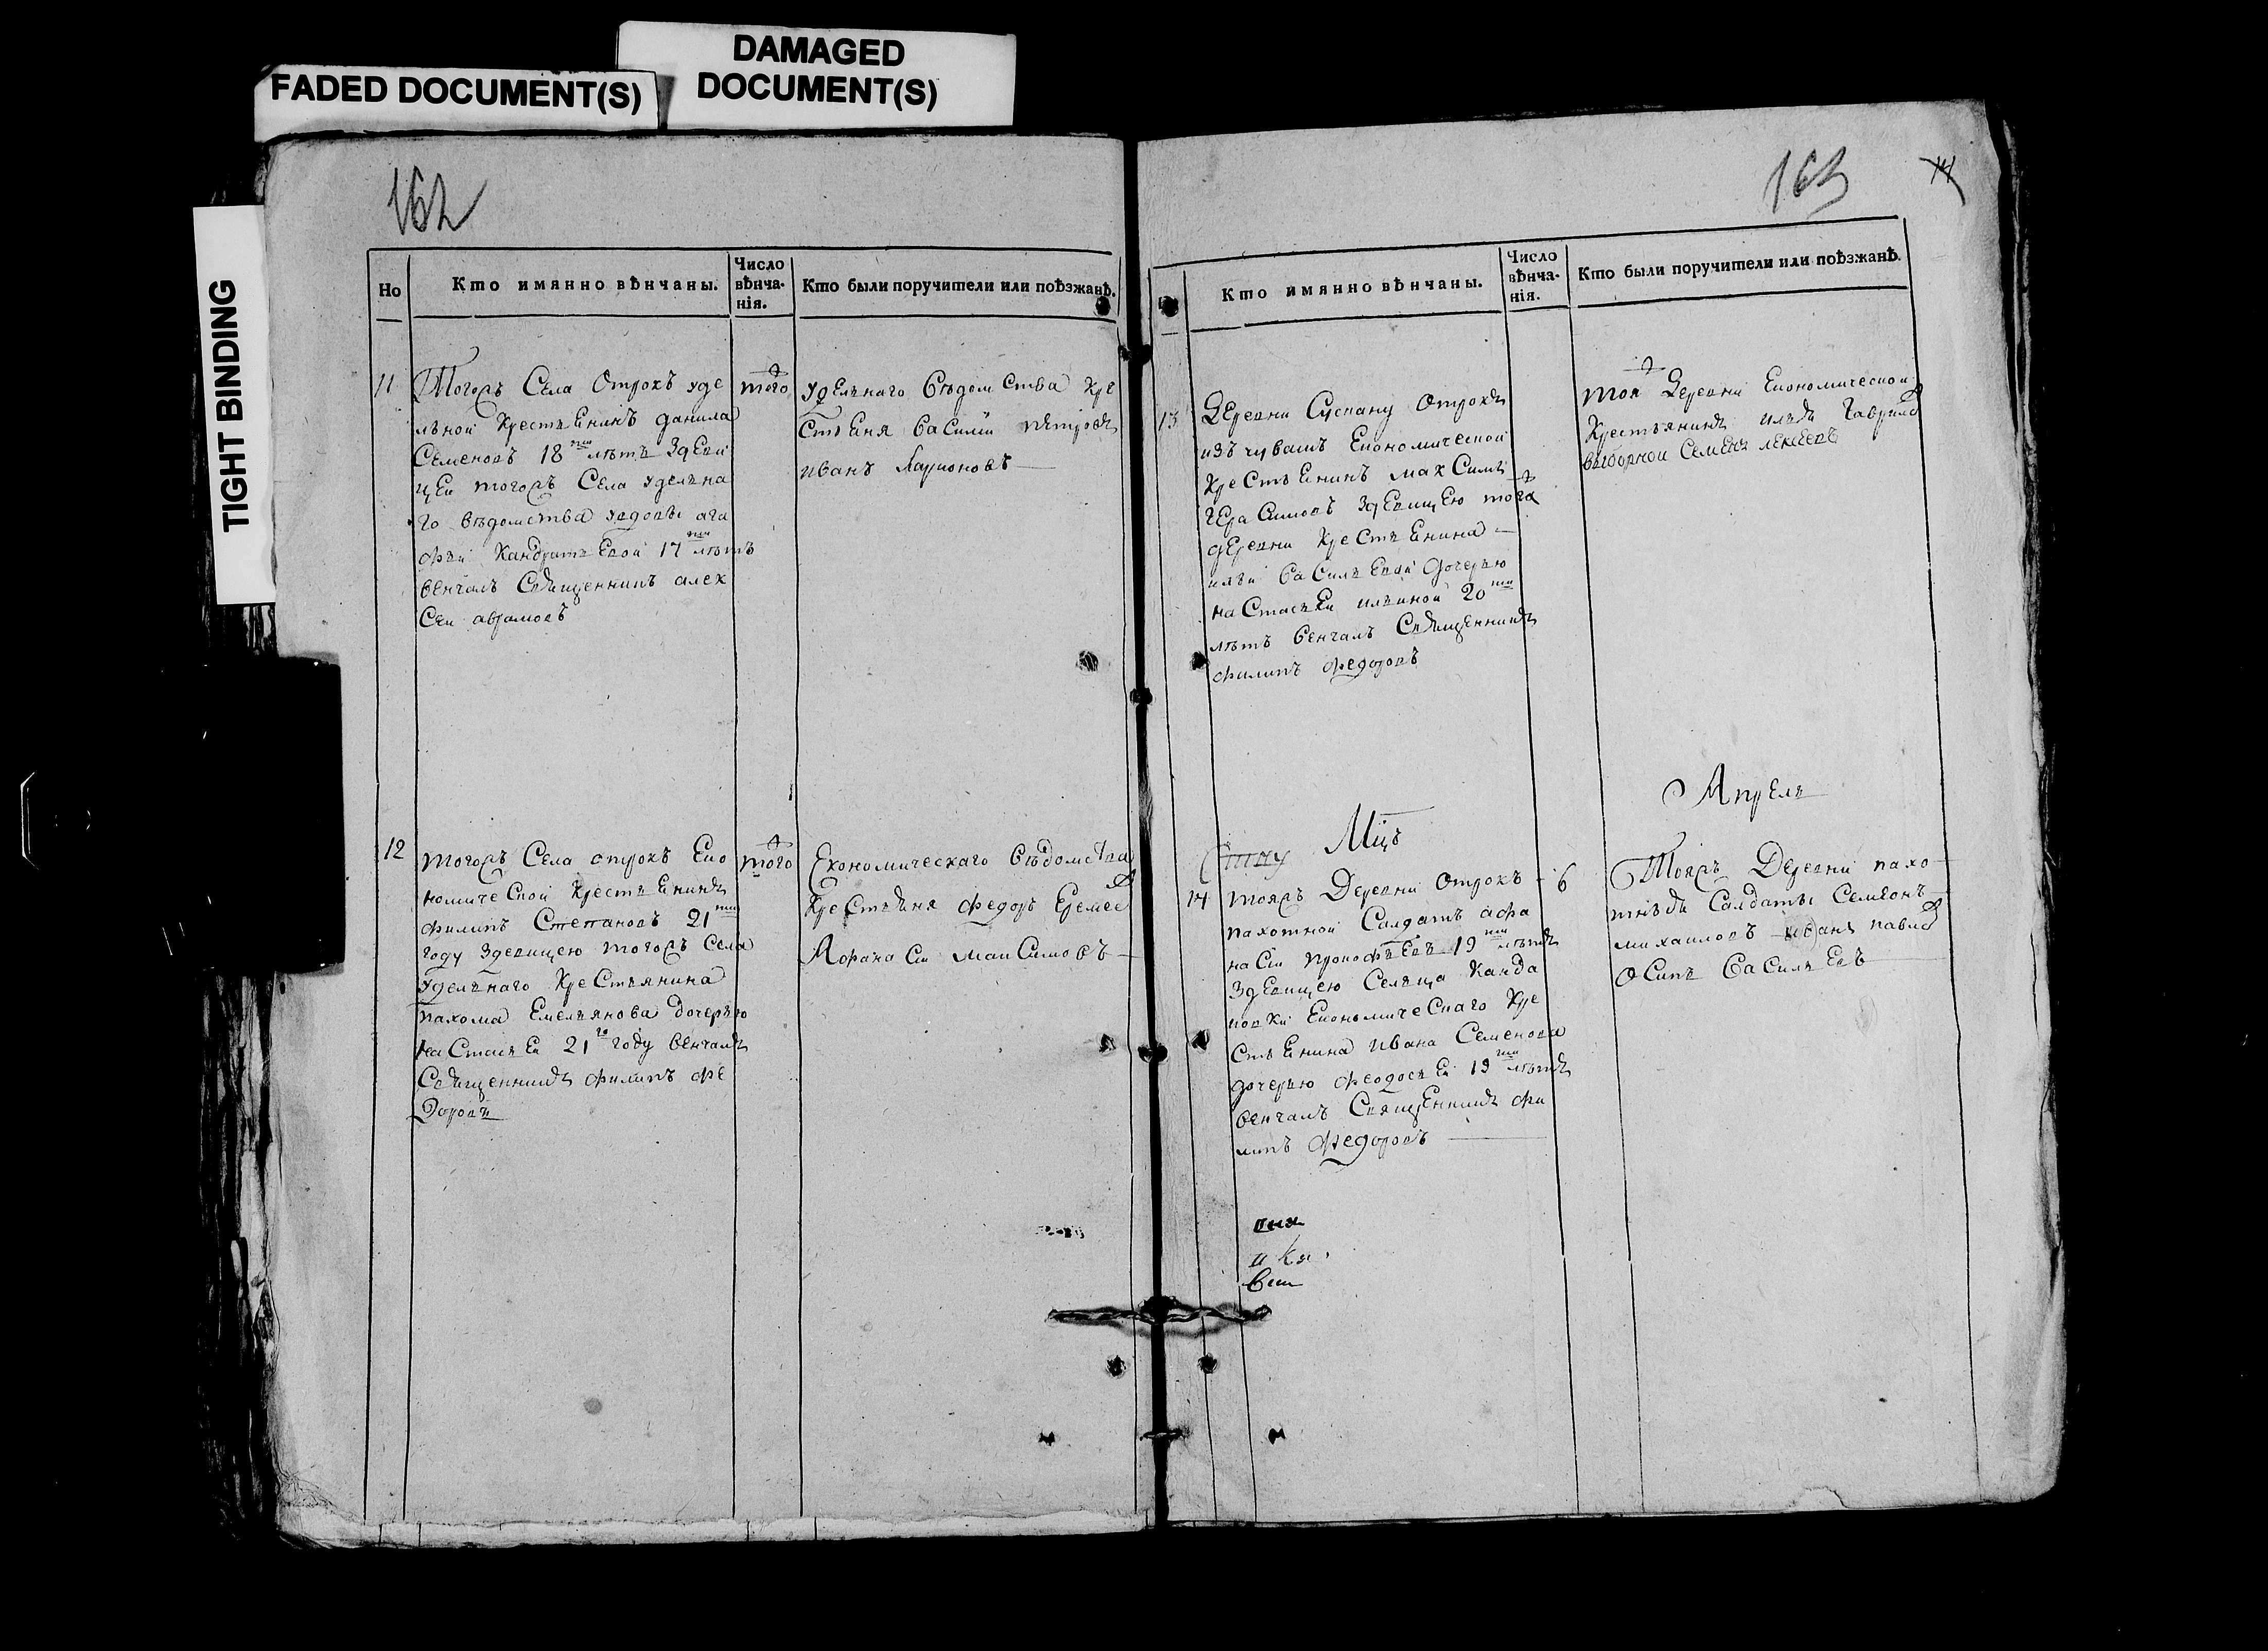 DAMAGED
DOCUMENT(S)
FADED DOCUMENT(S)
TIGHT BINDING
162
Но
Кто имянно вѣнчаны.
Число
вѣнча-
нія.
Кто были поручители или поѣзжанѣ.
11
Тогожъ Села Отрокъ уде
льной Крестьенинъ данила
Семеновъ 18ти лѣтъ Здеви
цеи тогожъ Села удельна
го вѣдомства вдовы ага
фьи Кандратьевой 17ти лѣтъ
венчалъ Священникъ алек
Сеи аврамовъ
того
удельнаго вѣдомства кре
стьеня василіи петровъ
иванъ Ларионовъ
12
тогожъ Села отрокъ Еко
номической Крестьенинъ
филипъ Степановъ 21ти
году Здевицею тогожъ Села
удельнаго Крестьянина
пахома Емельянова дочерью
настасьеи 21го году венчалъ
Священникъ филипъ фе
доровъ
того
Економическаго вѣдомства
Крестьеня федоръ Еремеев
Афанасеи максимовъ
163
Кто имянно вѣнчаны.
Число
вѣнча-
нія.
Кто были поручители или поѣзжанѣ.
13
Деревни отрокъ
изъ чувашъ Економической
крестьенинъ максимъ
герасимовъ Здевицею тоя
деревни крестьенина
ильи васильева дочерью
настасьеи ильиной 20ти
лѣтъ венчалъ Священникъ
филипъ федоровъ
тоя Деревни Економической
Крестьянинъ илья Гаврилов
выборной Семенъ лексеевъ
Мцъ
Апрель
14
тояжъ Деревни Отрокъ
пахотной Салдатъ афа
насеи прокофьевъ 19ти лѣтъ
Здевицею Сельца Канда
Економическаго кре
стьенина ивана Семенова
дочерью феодосьеи 19ти лѣтъ
венчалъ Священникъ фи
липъ федоровъ
6
Тояжъ Деревни пахо
тныя Салдаты Семенъ
михаиловъ иванъ павлов
Осипъ Васильевъ